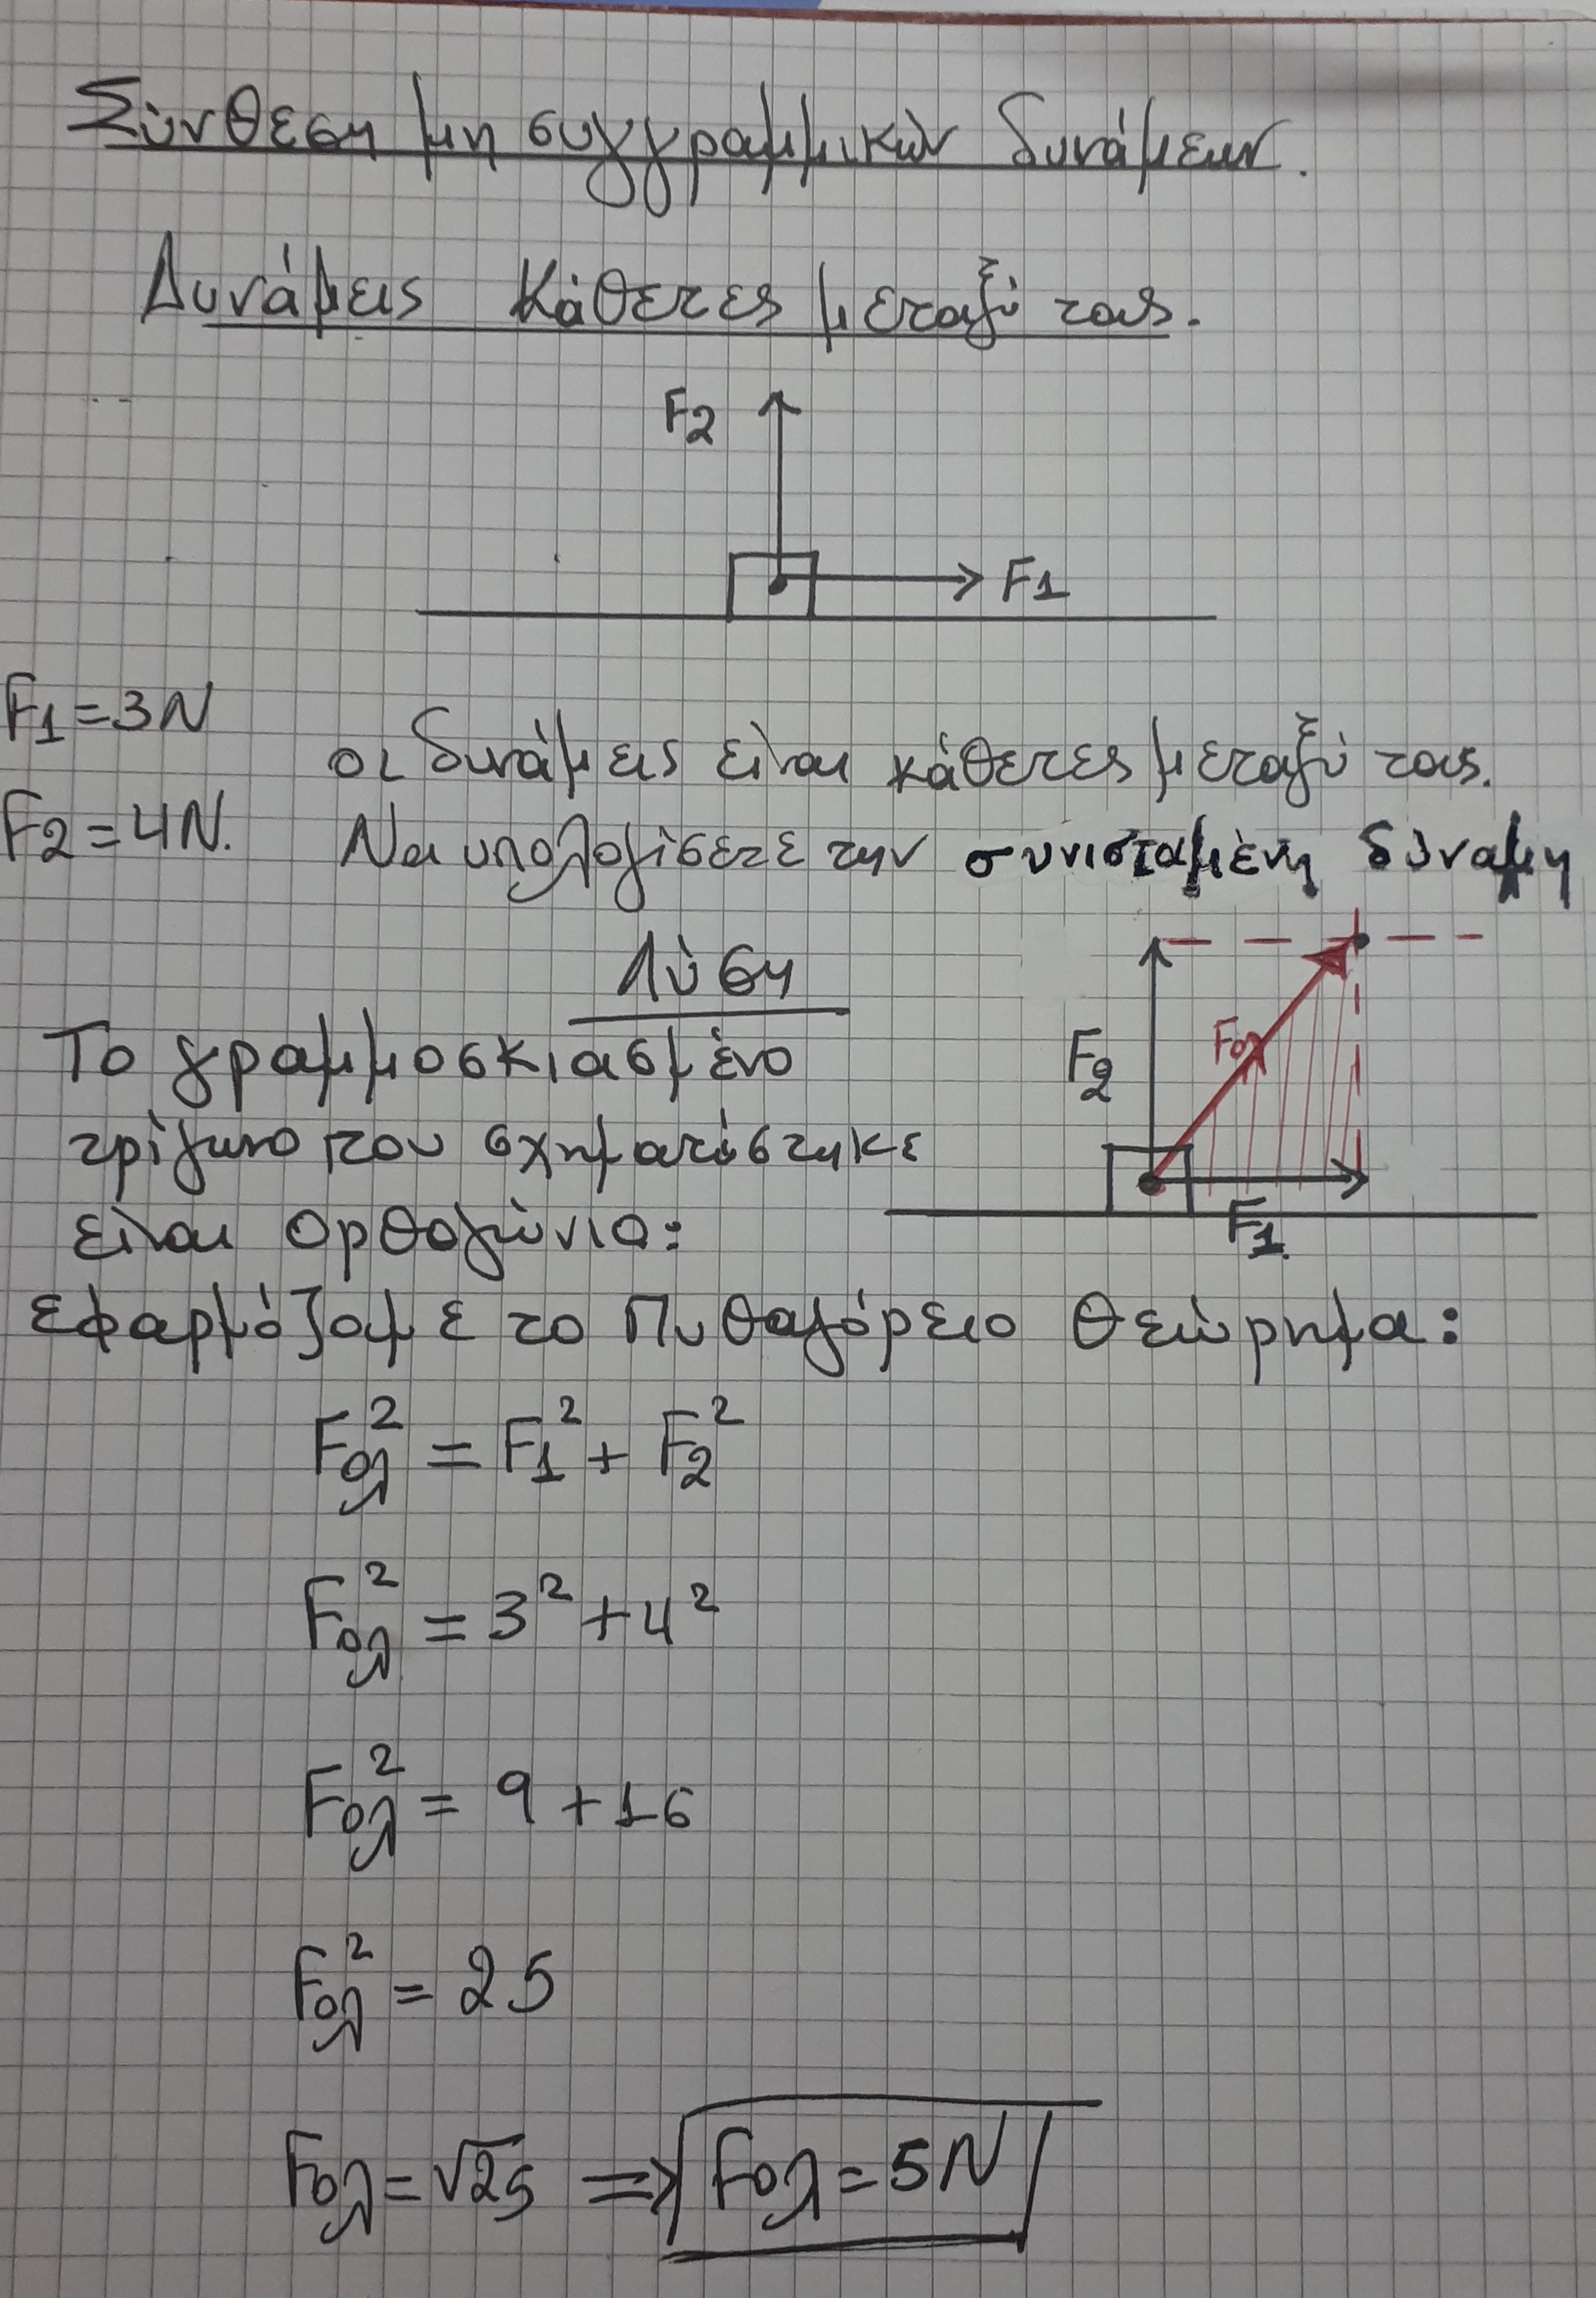 Σύνθεση μη συγγραμμικών δυνάμεων.
Δυνάμεις κάθετες μεταξύ τους.
F2
F1
F1=3N
οι δυνάμεις είναι κάθετες μεταξύ τους.
F2=4N.
Να υπολογίσετε την συνισταμένη δύναμη
Λύση
Το γραμμοσκιασμένο
τρίγωνο που σχηματίστηκε
είναι ορθογώνιο:
F2
Fολ
F1
εφαρμόζομε το Πυθαγόρειο Θεώρημα:
Fολ² = F1² + F2²
Fολ² = 3² + 4²
Fολ² = 9 + 16
Fολ² = 25
Fολ = √25 ⇒ Fολ = 5N